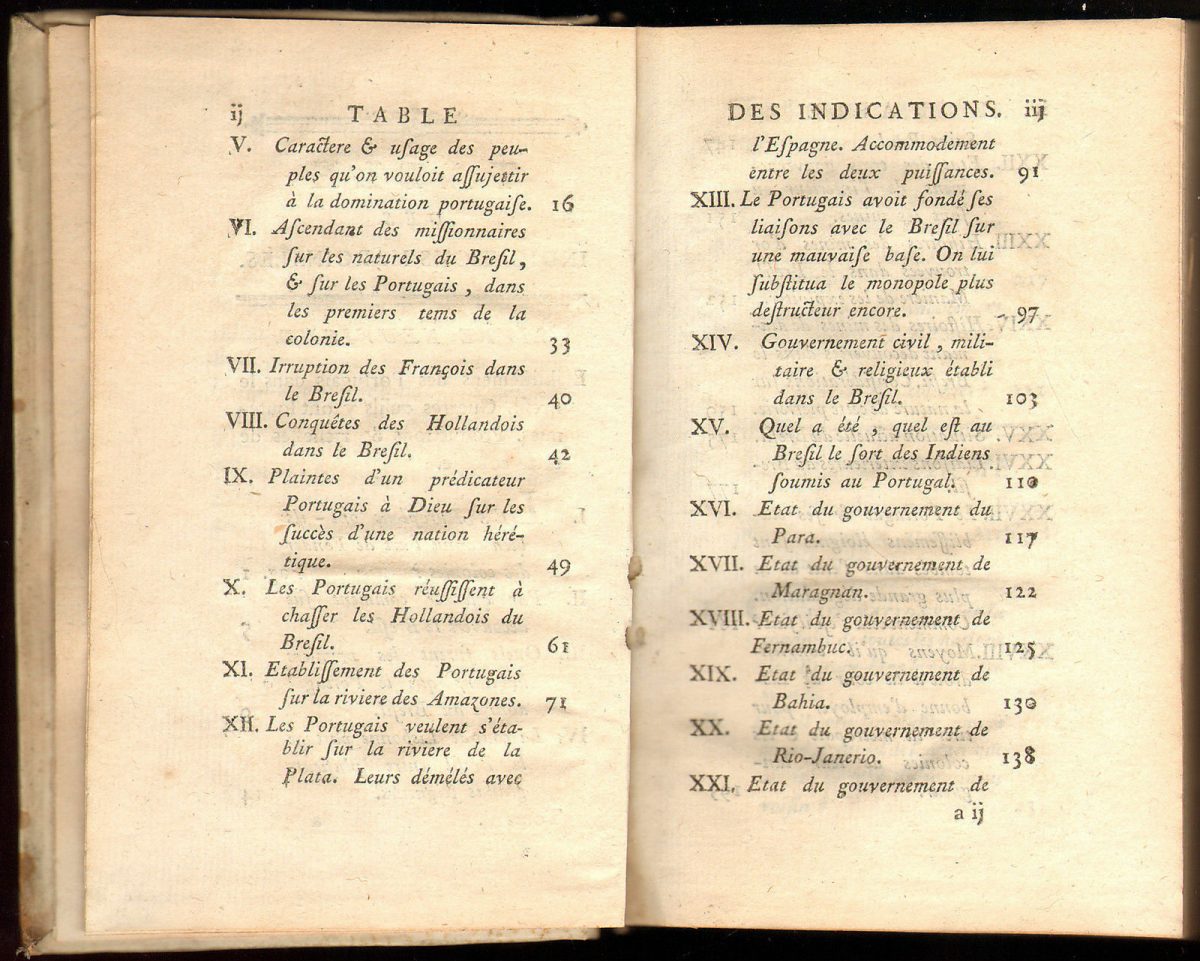 ij TABLE
V. Caractere & uſage des peu-
ples qu'on vouloit aſſujettir
à la domination portugaiſe. 16
VI. Aſcendant des miſſionnaires
ſur les naturels du Breſil,
& ſur les Portugais, dans
les premiers tems de la
colonie. 33
VII. Irruption des François dans
le Breſil. 40
VIII. Conquêtes des Hollandois
dans le Breſil. 42
IX. Plaintes d'un prédicateur
Portugais à Dieu ſur les
ſuccès d'une nation héré-
tique. 49
X. Les Portugais réuſſiſſent à
chaſſer les Hollandois du
Breſil. 61
XI. Etabliſſement des Portugais
ſur la riviere des Amazones. 71
XII. Les Portugais veulent s'éta-
blir ſur la riviere de la
Plata. Leurs démélés avec
DES INDICATIONS. iij
l'Eſpagne. Accommodement
entre les deux puiſſances. 91
XIII. Le Portugais avoit fondé ſes
liaiſons avec le Breſil ſur
une mauvaiſe baſe. On lui
ſubſtitua le monopole plus
deſtructeur encore. 97
XIV. Gouvernement civil, mili-
taire & religieux établi
dans le Breſil. 103
XV. Quel a été, quel eſt au
Breſil le ſort des Indiens
ſoumis au Portugal. 110
XVI. Etat du gouvernement du
Para. 117
XVII. Etat du gouvernement de
Maragnan. 122
XVIII. Etat du gouvernement de
Fernambuc. 125
XIX. Etat du gouvernement de
Bahia. 130
XX. Etat du gouvernement de
Rio-Janerio. 138
XXI. Etat du gouvernement de
a ij